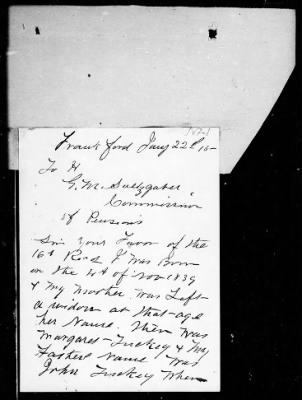 Frankford Jany 22d 15
To H
G. M. Saltzgaber
Commissior
of Pensions
Sir Your Favor of the
16th Recd I Was Born
on the 4th of Nov 1839
& My Mother Was Left
a widow at that age
her Name then Was
Margaret Tuckey & My
Fathers Name Was
John Tuckey When